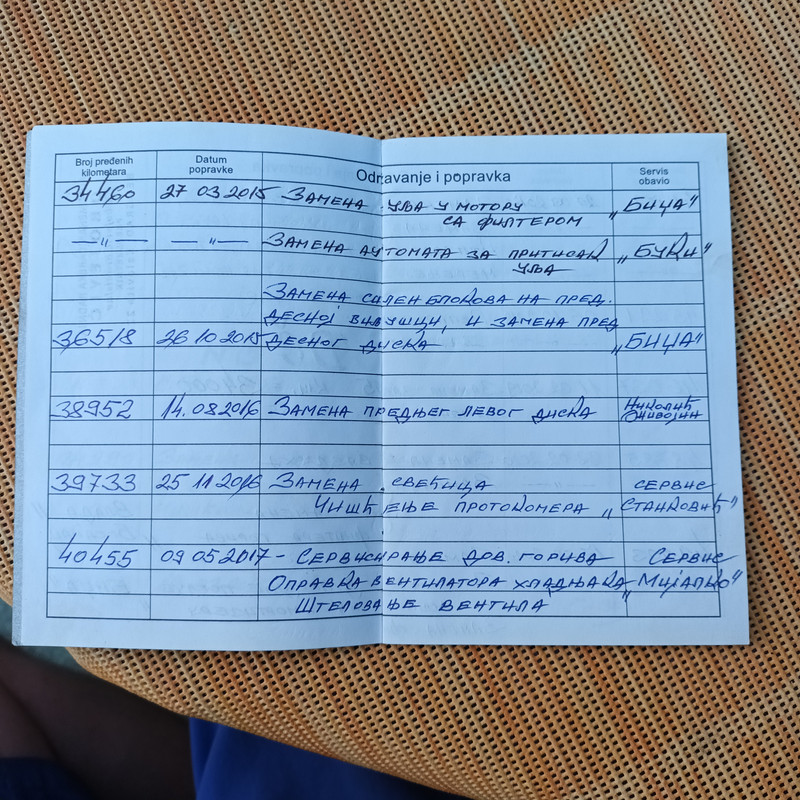 Broj pređenih kilometara Datum popravke Održavanje i popravka Servis obavio
34460 27 03 2015 Замена уља у мотору „Бица"
са филтером
—„— —„— Замена аутомата за притисак „Буки"
уља
Замена силен блокова на пред.
десној виљушци, и замена пред
36518 26 10 2015 десног диска „Бица"
38952 14.08 2016 Замена предњег левог диска Николић Живојин
39733 25 11 2016 Замена свећица сервис
Чишћење протокомера „Станковић"
40455 09 05 2017 - Сервисирање дов. горива Сервис
Оправка вентилатора хладњака „Мијалко"
Штеловање вентила